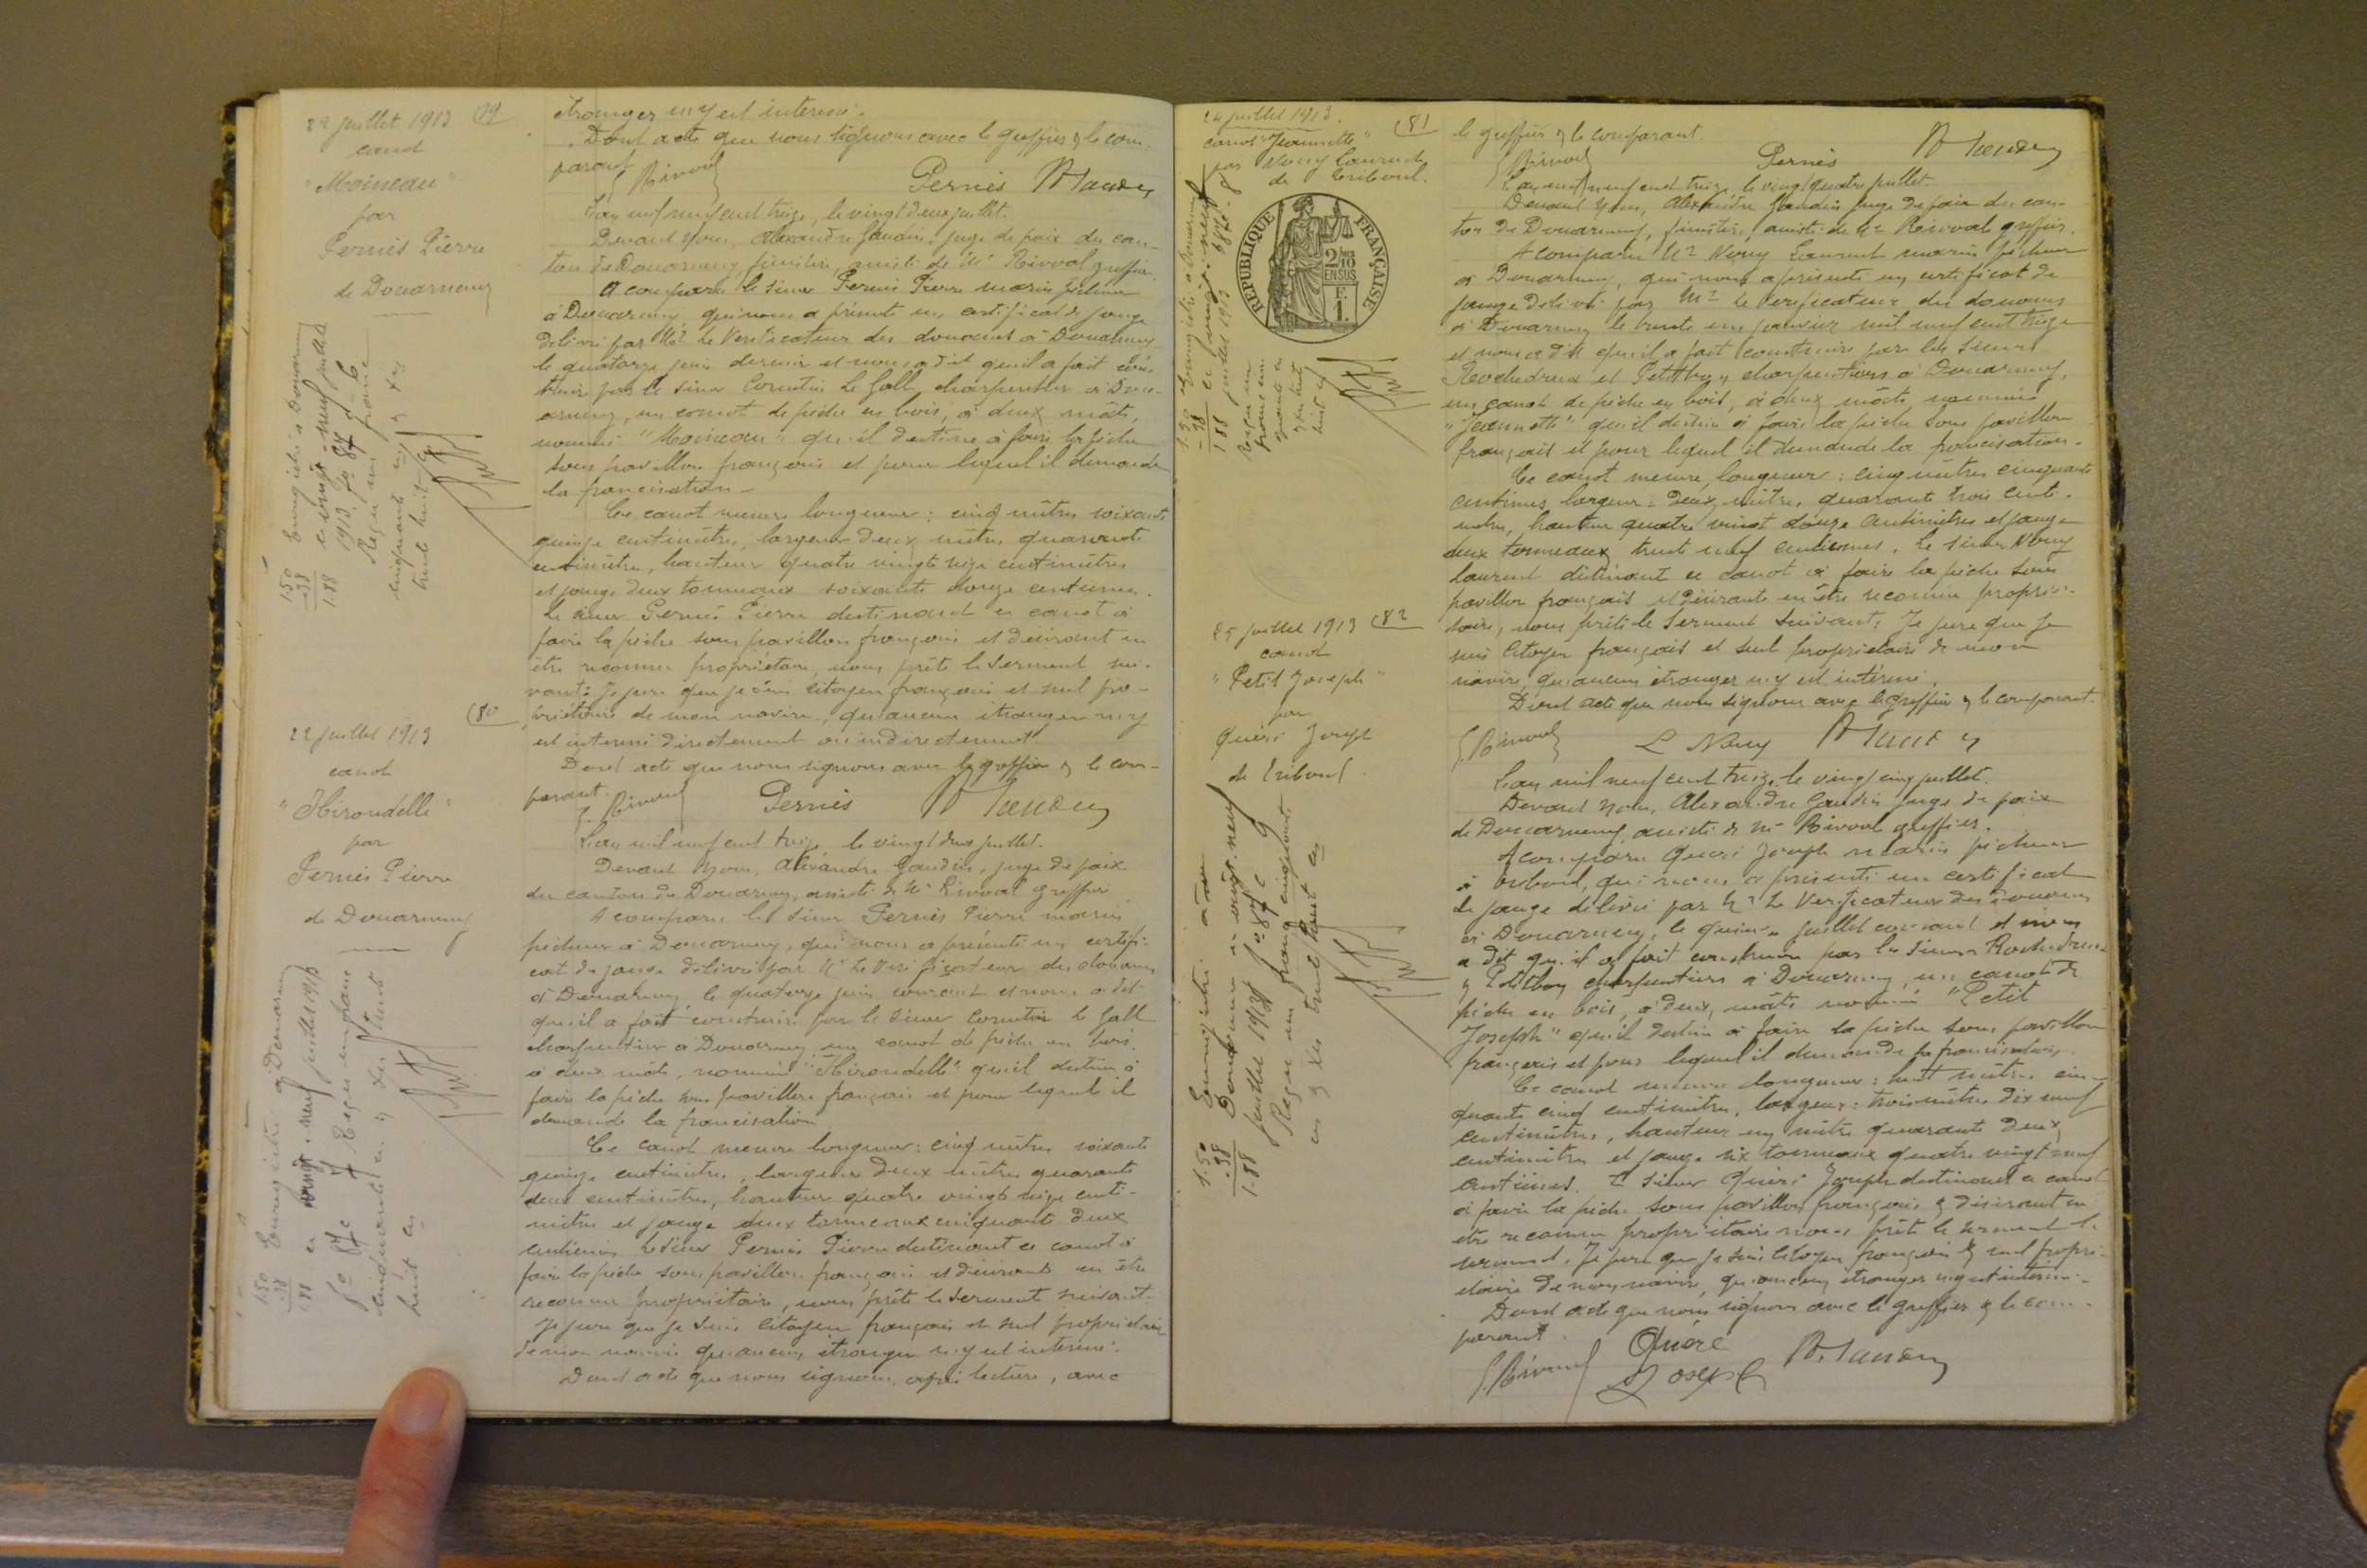 22 juillet 1913
79
canot
"Moineau"
par
Pernès Pierre
de Douarnenez
Enregistré à Douarnenez
le vingt-neuf juillet
1913, fo 87 c 6
Reçu un franc
cinquante
trente huit
1.50
-38
1.88
22 juillet 1913
80
canot
"Hirondelle"
par
Pernès Pierre
de Douarnenez
Enregistré à Douarnenez
le vingt-neuf juillet 1913
fo 87 c 7 Reçu un franc
cinquante
huit cs
1.50
-38
1.88
étranger n'y est intéressé.
Dont acte que nous signons avec le greffier & le com-
parant
Rivoal Pernès
L'an mil neuf cent treize, le vingt deux juillet.
Devant Nous, Alexandre Gaudin, juge de paix du can-
ton de Douarnenez, finistère, assisté de Me Rivoal greffier
A comparu le sieur Pernès Pierre marin pêcheur
à Douarnenez, qui nous a présenté un certificat de jauge
délivré par Mr Le Vérificateur des douanes à Douarnenez
le quatorze juin dernier et nous a dit qu'il a fait cons-
truire par le sieur Corentin Le Gall charpentier à Dou-
arnenez, un canot de pêche en bois, à deux mâts,
nommé "Moineau" qu'il destine à faire la pêche
sous pavillon français et pour lequel il demande
la francisation -
Ce canot mesure longueur : cinq mètres soixante
quinze centimètres, largeur deux mètres quarante
centimètres, hauteur quatre vingt seize centimètres
et jauge deux tonneaux soixante douze centièmes.
Le sieur Pernès Pierre destinant ce canot à
faire la pêche sous pavillon français et désirant en
être reconnu propriétaire, nous prête le serment sui-
vant : Je jure que je suis citoyen français et seul pro-
priétaire de mon navire, qu'aucun étranger n'y
est intéressé directement ou indirectement
Dont acte que nous signons avec le greffier & le com-
parant.
Rivoal Pernès
L'an mil neuf cent treize, le vingt deux juillet.
Devant Nous, Alexandre Gaudin, juge de paix
du canton de Douarnenez, assisté de Me Rivoal greffier
A comparu le sieur Pernès Pierre marin
pêcheur à Douarnenez, qui nous a présenté un certifi-
cat de jauge délivré par Mr Le Vérificateur des douanes
à Douarnenez le quatorze juin courant et nous a dit
qu'il a fait construire par le sieur Corentin Le Gall
charpentier à Douarnenez un canot de pêche en bois
à deux mâts, nommé "Hirondelle" qu'il destine à
faire la pêche sous pavillon français et pour lequel il
demande la francisation
Ce canot mesure longueur : cinq mètres soixante
quinze centimètres, largeur deux mètres quarante
deux centimètres, hauteur quatre vingt seize centi-
mètres et jauge deux tonneaux cinquante deux
centièmes Le sieur Pernès Pierre destinant ce canot à
faire la pêche sous pavillon français et désirant en être
reconnu propriétaire, nous prête le serment suivant :
Je jure que je suis citoyen français et seul propriétaire
de mon navire qu'aucun étranger n'y est intéressé.
Dont acte que nous signons, après lecture, avec
24 juillet 1913.
81
canot "Jeannette"
par Nouy Laurent
de Tréboul.
REPUBLIQUE FRANÇAISE
2/10
EN SUS
F.
1.
1.50
-38
1.88
25 juillet 1913
82
canot
"Petit Joseph"
par
Quéré Joseph
de Tréboul.
Enregistré à
Douarnenez le vingt-neuf
juillet 1913 fo 87 c 9
Reçu un franc cinquante
trente huit cs
1.50
-38
1.88
le greffier & le comparant.
Rivoal Pernès
L'an mil neuf cent treize, le vingt quatre juillet.
Devant Nous, Alexandre Gaudin juge de paix du can-
ton de Douarnenez, finistère, assisté de Me Rivoal greffier.
A comparu Mr Nouy Laurent marin pêcheur
à Douarnenez, qui nous a présenté un certificat de
jauge délivré par Mr le Vérificateur des douanes
à Douarnenez le trente un janvier mil neuf cent treize
et nous a dit qu'il a fait construire par les sieurs
charpentiers à Douarnenez,
un canot de pêche en bois, à deux mâts nommé
"Jeannette" qu'il destine à faire la pêche sous pavillon
français et pour lequel il demande la francisation.
Ce canot mesure, longueur : cinq mètres cinquante
centimes, largeur : deux mètres quarante trois centi-
mètres, hauteur quatre vingt douze centimètres et jauge
deux tonneaux trente neuf centièmes. Le sieur Nouy
Laurent destinant ce canot à faire la pêche sous
pavillon français et désirant en être reconnu proprié-
taire, nous prête le serment suivant : Je jure que je
suis citoyen français et seul propriétaire de mon
navire, qu'aucun étranger n'y est intéressé.
Dont acte que nous signons avec le greffier & le comparant.
Rivoal L Nouy
L'an mil neuf cent treize, le vingt cinq juillet.
Devant Nous, Alexandre Gaudin juge de paix
de Douarnenez, assisté de Me Rivoal greffier.
A comparu Quéré Joseph marin pêcheur
à Tréboul, qui nous a présenté un certificat
de jauge délivré par Mr Le Vérificateur des Douanes
à Douarnenez, le quinze juillet courant et nous
a dit qu'il a fait construire par les sieurs
charpentiers à Douarnenez, un canot de
pêche en bois, à deux mâts nommé "Petit
Joseph" qu'il destine à faire la pêche sous pavillon
français et pour lequel il demande la francisation.
Ce canot mesure longueur : huit mètres cin-
quante cinq centimètres, largeur : trois mètres dix neuf
centimètres, hauteur un mètre quarante deux
centimètres et jauge six tonneaux quatre vingt neuf
centièmes. Le sieur Quéré Joseph destinant ce canot
à faire la pêche sous pavillon français & désirant en
être reconnu propriétaire nous prête le serment
Je jure que je suis citoyen français & seul propri-
étaire de mon navire, qu'aucun étranger n'y est intéressé.
Dont acte que nous signons avec le greffier & le com-
parant.
Rivoal Quéré
Joseph